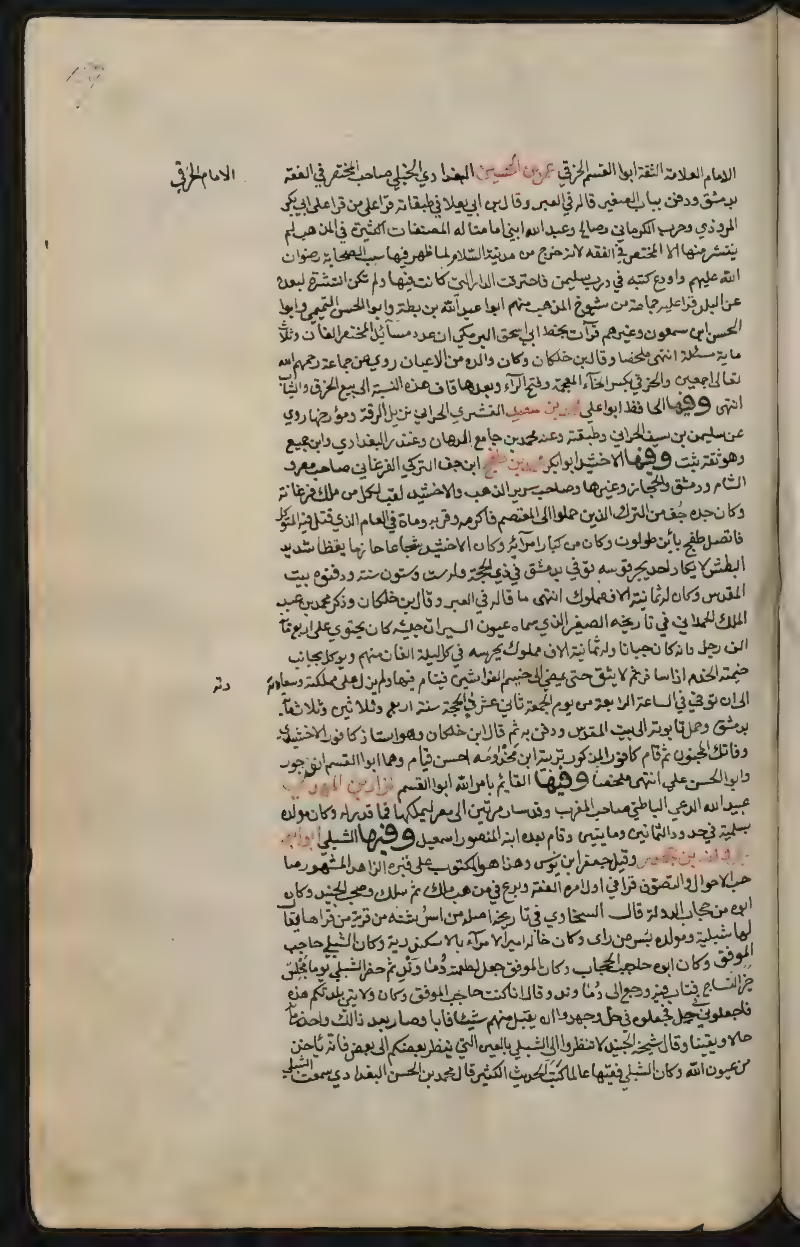 الامام الخرقي
الامام العلامة الثقة ابوا القسم الخرقي عمر بن الحسين البغدادي الحنبلي صاحب المختصر في الفقه
بدمشق ودفن بباب الصغير قاله في العبر وقال بن ابي يعلا في طبقاته قرا على من قرا على ابي بكر
المروذي وحرب الكرماني وصالح وعبد الله ابني امامنا له المصنفات الكثيرة في المذهب لم
ينتشر منها الا المختصر في الفقه لانه خرج من مدينة السلام لما ظهر فيها سب الصحابة رضوان
الله عليهم واودع كتبه في درب سليمن فاحترقت الدار التي كانت فيها ولم تكن انتشرة لبعده
عن البلد قرا عليه جماعة من شيوخ المذهب منهم ابوا عبد الله بن بطة وابوا الحسن التميمي وابوا
الحسن ابن سمعون وغيرهم قرأت بخط ابي اسحق البرمكي ان عدد مسآيل المختصر الفان وثلثا
ماية مسئلة انتهى ملخصا وقال بن خلكان وكان والده من الاعيان روي عن جماعة رحمهم الله
تعالى اجمعين والخرقي بكسر الخآء المعجمة وفتح الرآء وبعدها قاف هذه النسبة الى بيع الخرق والثياب
انتهى وفيها الحافظ ابوا علي محمد بن سعيد القشيري الحراني نزيل الرقة ومؤرخها روي
عن سليمن بن سيف الحراني وطبقته وعنه محمد بن جامع الدهان وغندر البغدادي وابن جميع
وهو ثقة ثبت وفيها الاخشيد ابوا بكر محمد بن طغج ابن جف التركي الفرغاني صاحب مصر و
الشام ودمشق والحجاز وغيرها وصاحب سرير الذهب والاخشيد لقب لكل من ملك فرغانة
وكان جده جف من الترك الذين حملوا الى المعتصم فاكرمه وقربه ومات في العام الذي قتل فيه المتوكل
فاتصل طغج بابن طولون وكان من كبار امرآئه وكان الاخشيد شجاعا حازما يقظا شديد
البطش لا يكاد احد يجر قوسه توفي بدمشق في ذي الحجة وله ست وستون سنة ودفنوه ببيت
المقدس وكان له ثمانية الاف مملوك انتهى ما قاله في العبر وقال بن خلكان وذكر محمد بن عبد
الملك الهمذاني في تاريخه الصغير الذي سماه عيون السير ان جيشه كان يحتوي على اربع مائة
الف رجل وانه كان جبانا وله ثمانية الاف مملوك يحرسه في كل ليلة الفان منهم ويوكل بجانب
خيمته الخدم اذا سافر ثم لا يثق حتى يمضي الى خيم الفراشين فينام فيها ولم يزل على مملكته وسعادته
الى ان توفي في الساعة الرابعة من يوم الجمعة ثاني عشر ذي الحجة سنة اربع وثلاثين وثلاثماية
بدمشق وحمل تابوته الى بيت المقدس ودفن به ثم قال ابن خلكان وهو استاذ كافور الاخشيدي
وفاتك المجنون ثم قام كافور المذكور بتربية ابن مخدومه احسن قيام وهما ابوا القسم انوجور
وابوا الحسن علي انتهى ملخصا وفيها القايم بامر الله ابوا القسم نزار بن المهدي
عبيد الله الدعي الباطني صاحب المغرب وقد سار مرتين الى مصر ليملكها فما قدر له وكان مولده
بسلمية في حدود الثمانين ومايتين وقام بعده ابنه المنصور اسمعيل وفيها الشبلي ابوا بكر
بن جحدر وقيل جعفر ابن يونس وهذا هو المكتوب على قبره الزاهد المشهور صا
حب الاحوال والتصوف قرا في اول امره الفقه وبرع في مذهب ملك ثم سلك وصحب الجنيد وكان
ابوه من حجاب الدولة قال السخاوي في تاريخه اصله من اسروشنه من قرية من قراها يقال
لها شبلية ومولده بسر من راى وكان خاله امير الامرآء بالاسكندرية وكان الشبلي حاجب
الموفق وكان ابوه حاجب الحجاب وكان الموفق جعل لطعمته دماوند ثم حضر الشبلي يوما مجلس
خير النساج فتاب فيه ورجع الى دماوند وقال انا كنت حاجب الموفق وكان ولايتي بلدتكم هذه
فاجعلوني في حل فجعلوه في حل وجهدوا ان يقبل منهم شيئا فابا وصار بعد ذالك واحد زمانه
حالا ويقينا وقال شيخه الجنيد لا تنظروا الى الشبلي بالعين التي ينظر بعضكم الى بعض فانه عين
من عيون الله وكان الشبلي فقيها عالما كتب الحديث الكثير قال محمد بن الحسن البغدادي سمعت الشبلي